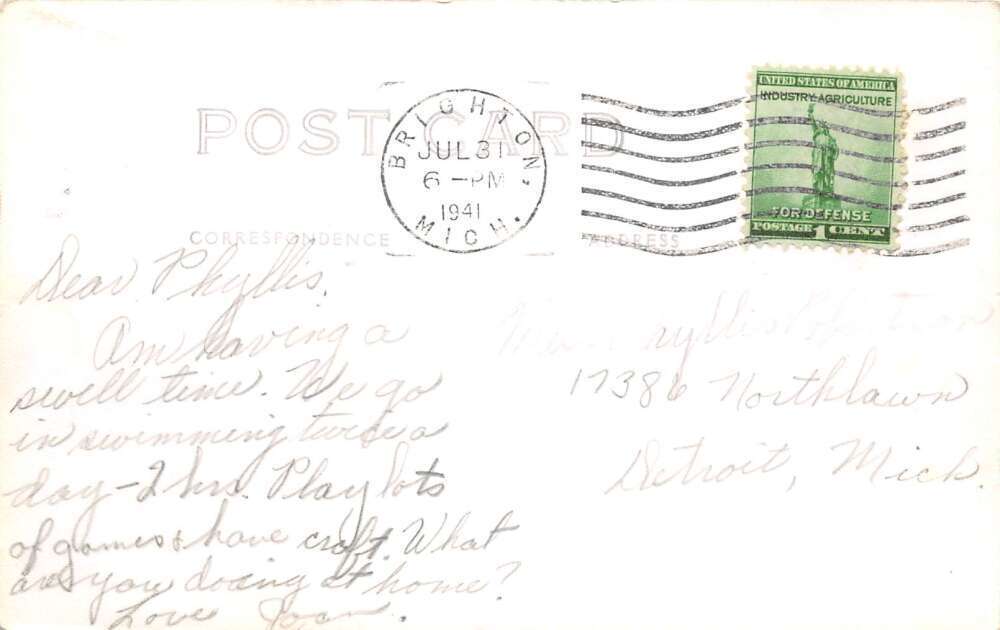 POST CARD
BRIGHTON,
JUL 31
6 - PM
1941
MICH.
UNITED STATES OF AMERICA
INDUSTRY AGRICULTURE
FOR DEFENSE
POSTAGE 1 CENT
CORRESPONDENCE
ADDRESS
Dear Phyllis,
Am having a
swell time. We go
in swimming twice a
day - 2 hrs. Play lots
of games & have craft. What
are you doing at home?
Love Joan.
Phyllis
17386 Northlawn
Detroit, Mich.